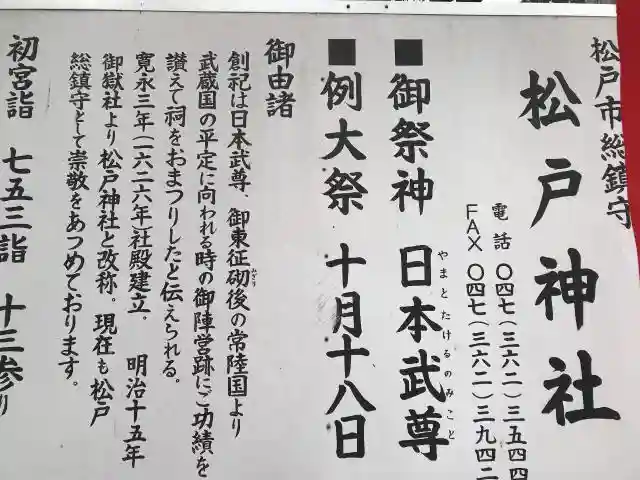 松戸市総鎮守
松戸神社
電話 〇四七(三六二)三五四四
FAX 〇四七(三六二)三九四二
■御祭神 日本武尊
やまとたけるのみこと
■例大祭 十月十八日
御由諸
創祀は日本武尊、御東征砌後の常陸国より
みぎり
武蔵国の平定に向われる時の御陣営跡にご功績を
讃えて祠をおまつりしたと伝えられる。
寛永三年(一六二六年)社殿建立. 明治十五年
御嶽社より松戸神社と改称。現在も松戸
総鎮守として崇敬をあつめております。
初宮詣 七五三詣 十三参り